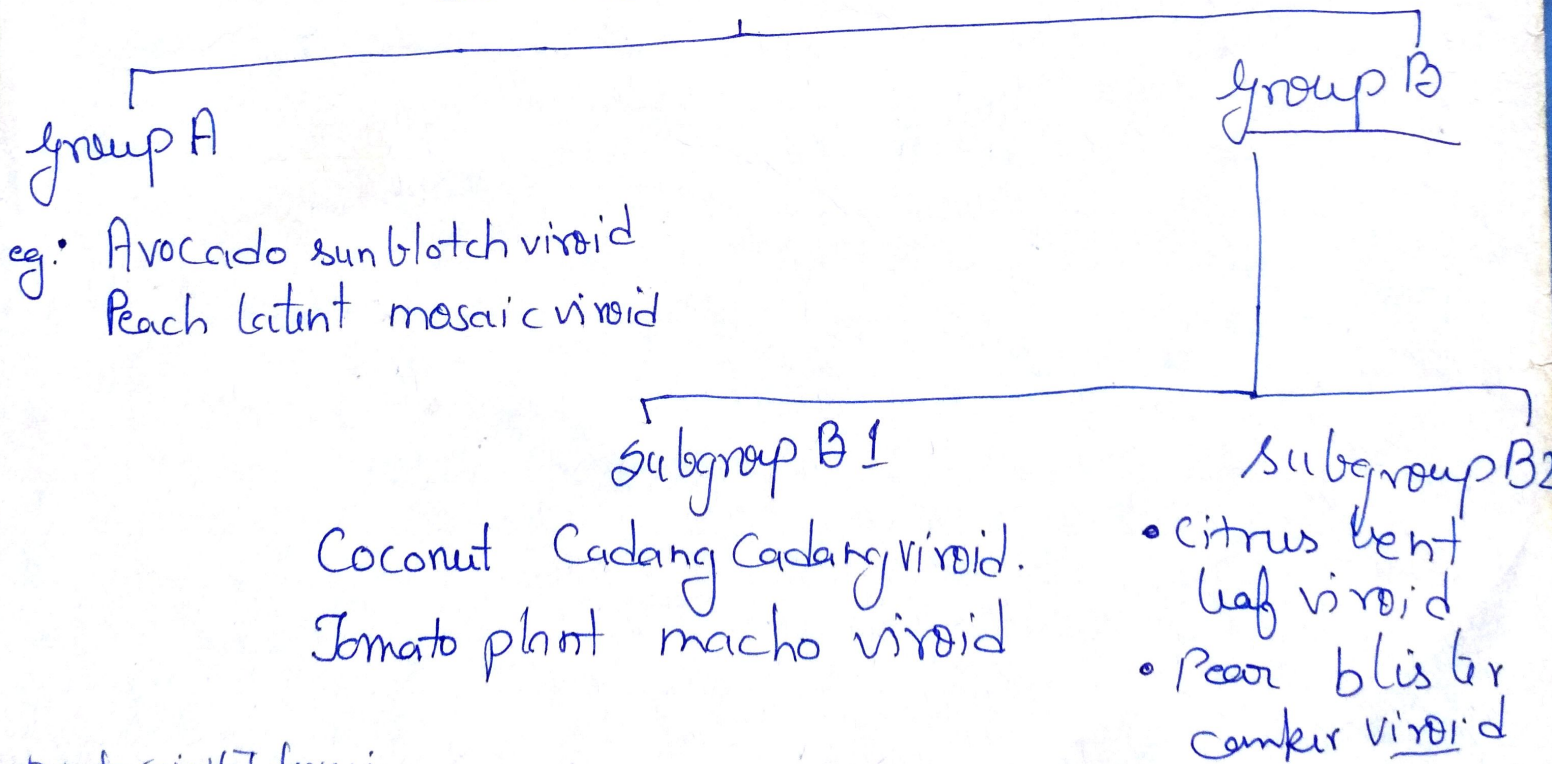 Group A
Group B
eg: Avocado sunblotch viroid
Peach latent mosaic viroid
Subgroup B 1
Coconut Cadang Cadang viroid.
Tomato plant macho viroid
Subgroup B2
• Citrus bent
leaf viroid
• Pear blister
canker viroid